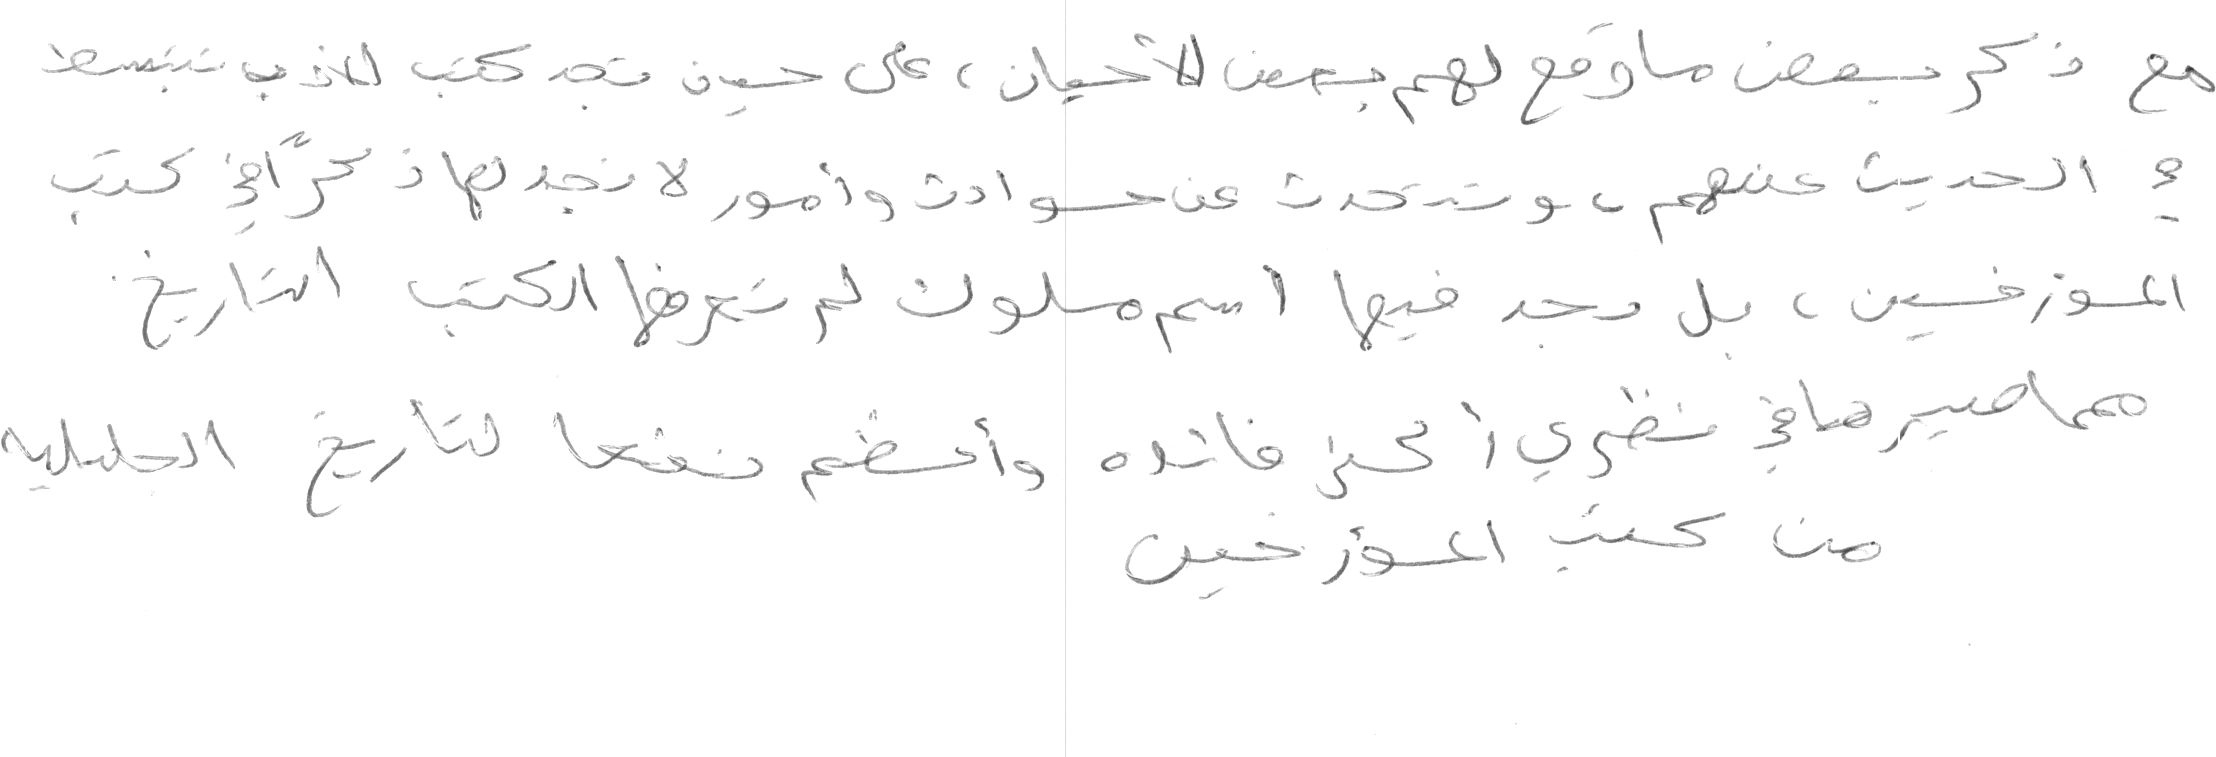 مع ذكر بعض ما وقع لهم بعض الأحيان، على حين تجد كتب الأدب تنبسط
في الحديث عنهم، وتتحدث عن حوادث وأمور لا نجد لها ذكرًا في كتب
المؤرخين، بل نجد فيها اسم ملوك لم تعرفها الكتب التاريخ
مما صيرها في نظري أكثر فائده وأعظم نفعا لتاريخ الجاهلية
من كتب المؤرخين